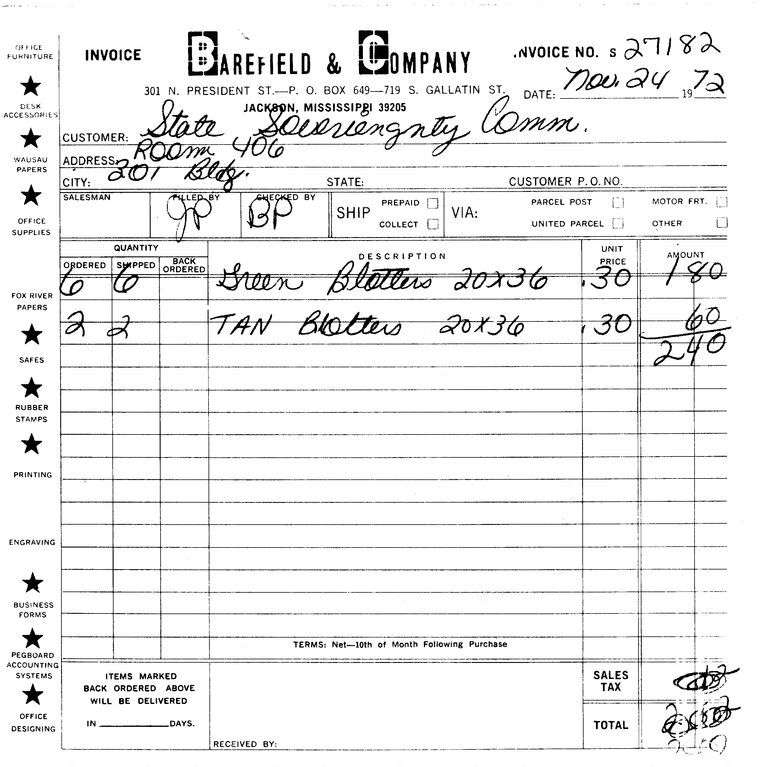 INVOICE BAREFIELD & COMPANY INVOICE NO. S 27182
301 N. PRESIDENT ST.—P. O. BOX 649—719 S. GALLATIN ST.
JACKSON, MISSISSIPPI 39205
DATE: Nov. 24 1972
CUSTOMER: State Sovereingnty Comm.
ADDRESS: Room 406
CITY: 201 Bldg. STATE: CUSTOMER P.O. NO.
SALESMAN FILLED BY JP CHECKED BY BP SHIP PREPAID COLLECT VIA: PARCEL POST UNITED PARCEL MOTOR FRT. OTHER
QUANTITY DESCRIPTION UNIT PRICE AMOUNT
ORDERED SHIPPED BACK ORDERED
6 6 Green Blotters 20x36 .30 1 80
2 2 TAN Blotters 20x36 .30 60
2 40
TERMS: Net—10th of Month Following Purchase
ITEMS MARKED
BACK ORDERED ABOVE
WILL BE DELIVERED
IN DAYS.
RECEIVED BY:
SALES TAX
TOTAL
OFFICE FURNITURE
DESK ACCESSORIES
WAUSAU PAPERS
OFFICE SUPPLIES
FOX RIVER PAPERS
SAFES
RUBBER STAMPS
PRINTING
ENGRAVING
BUSINESS FORMS
PEGBOARD ACCOUNTING SYSTEMS
OFFICE DESIGNING